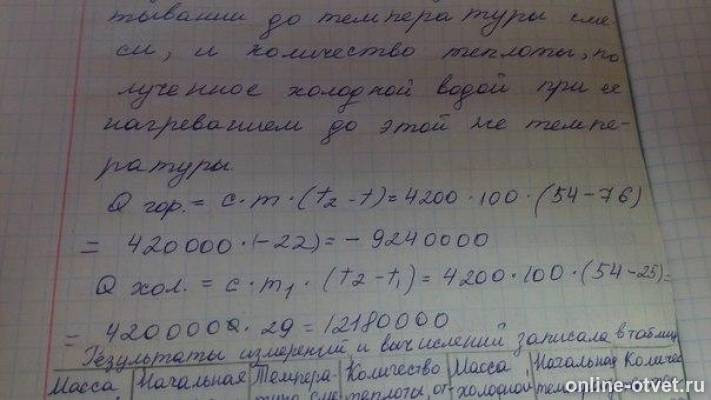 тывании до температуры сме-
си, и количество теплоты, по
лученное холодной водой при ее
нагреванием до этой же темпе-
ратуры.
Q гор. = c·m·(t₂-t)=4200·100·(54-76)
= 420000·(-22)= -9240000
Q хол. = c·m₁·(t₂-t₁)=4200·100·(54-25)=
= 4200000·29=12180000
Результаты измерений и вычислений записала в таблиц
Масса Начальная Темпера- Количество Масса Начальная Количес
теплоты, от- холодной
online-otvet.ru